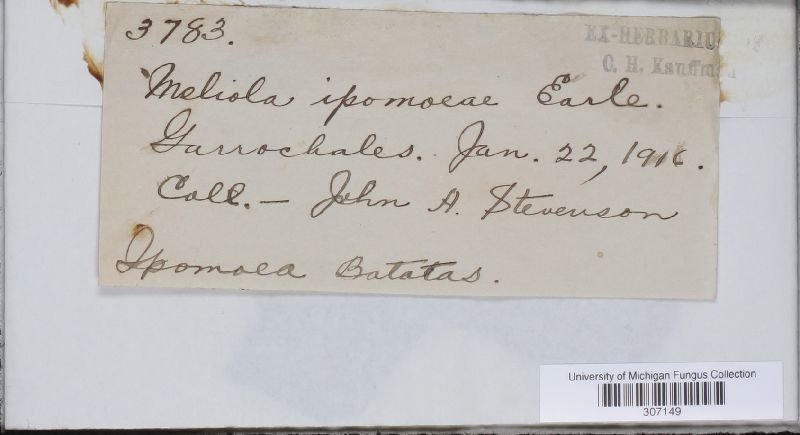 3783.
EX-HERBARIU
C. H. Kauffma
Meliola ipomoeae Earle.
Garrochales. Jan. 22, 1916.
Coll. - John A. Stevenson
Ipomoea Batatas.
University of Michigan Fungus Collection
307149